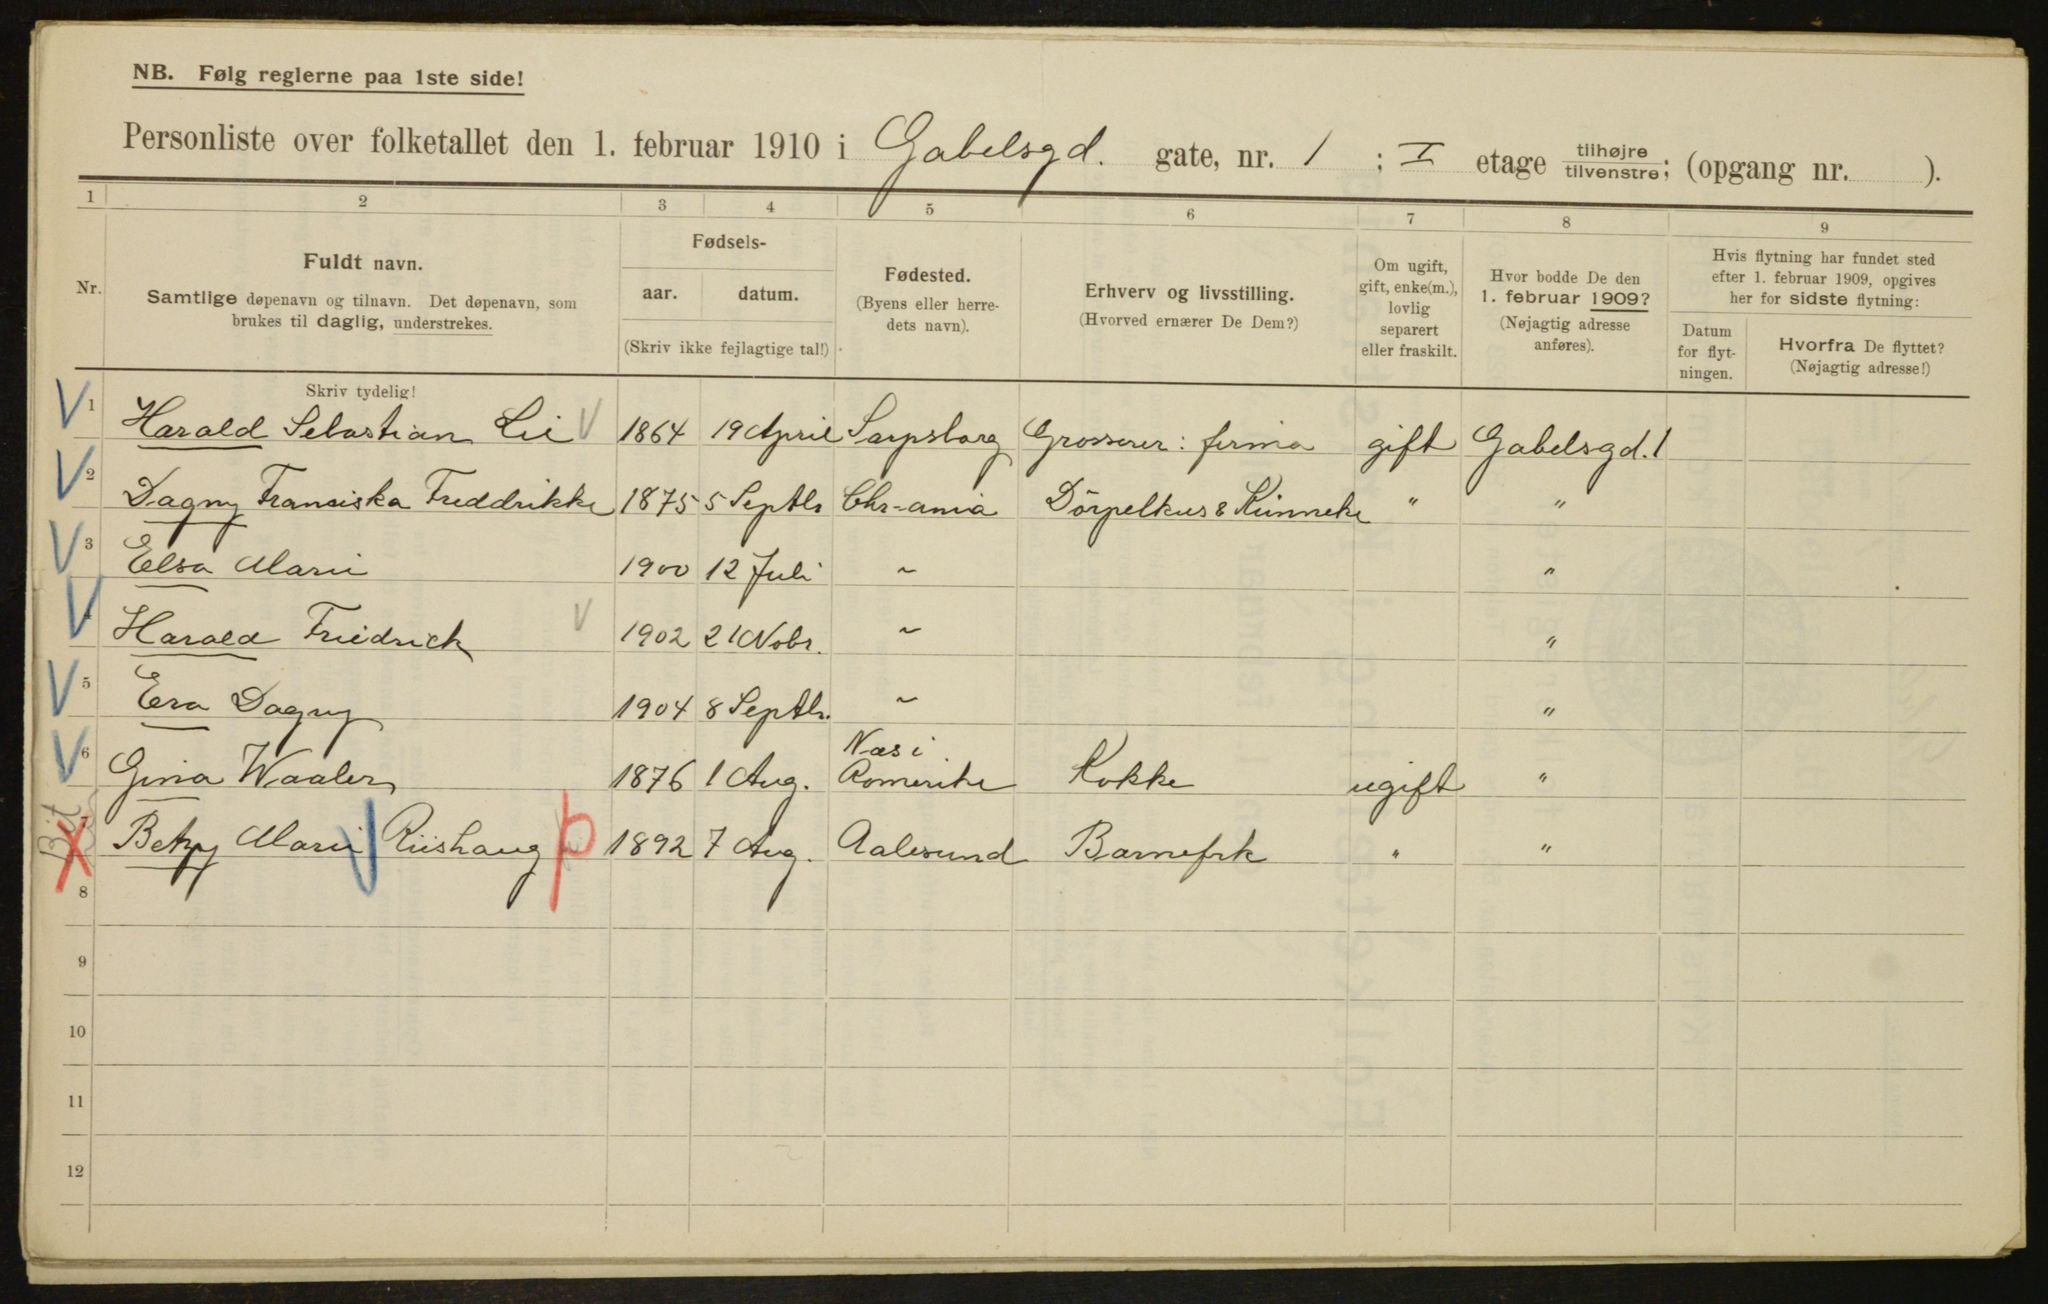 NB. Følg reglerne paa 1ste side!
Personliste over folketallet den 1. februar 1910 i Gabelsgd. gate, nr. 1 ; I etage tilhøjre tilvenstre; (opgang nr. ).
1 2 3 4 5 6 7 8 9
Nr.
Fuldt navn.
Samtlige døpenavn og tilnavn. Det døpenavn, som
brukes til daglig, understrekes.
Fødsels-
aar. datum.
(Skriv ikke fejlagtige tal!)
Fødested.
(Byens eller herre-
dets navn).
Erhverv og livsstilling.
(Hvorved ernærer De Dem?)
Om ugift,
gift, enke(m.),
lovlig
separert
eller fraskilt.
Hvor bodde De den
1. februar 1909?
(Nøjagtig adresse
anføres).
Hvis flytning har fundet sted
efter 1. februar 1909, opgives
her for sidste flytning:
Datum
for flyt-
ningen.
Hvorfra De flyttet?
(Nøjagtig adresse!)
Skriv tydelig!
1 Harald Sebastian Lie 1864 19 April Sarpsborg Grosserer: firma gift Gabelsgd. 1
2 Dagny Franciska Freddrikke 1875 5 Septbr Chr-ania Dörpelkus & Künneke " "
3 Elsa Marie 1900 12 Juli ~ "
4 Harald Friedrich 1902 21 Nobr. ~ "
5 Eva Dagny 1904 8 Septbr. ~ "
6 Gina Waaler 1876 1 Aug. Næs i Romerike Kokke ugift "
7 Betzy Marie Riishaug 1892 7 Aug. Aalesund Barnefrk " "
8
9
10
11
12